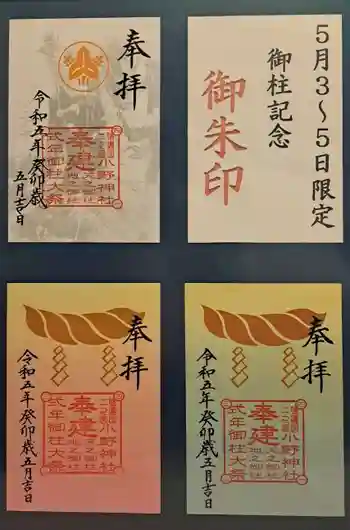 奉拝
令和五年癸卯歳
五月吉日
小野神社
奉建
式年御柱大祭
5月3～5日限定
御柱記念
御朱印
奉拝
令和五年癸卯歳五月吉日
小野神社
奉建
式年御柱大祭
奉拝
令和五年癸卯歳五月吉日
小野神社
奉建
式年御柱大祭